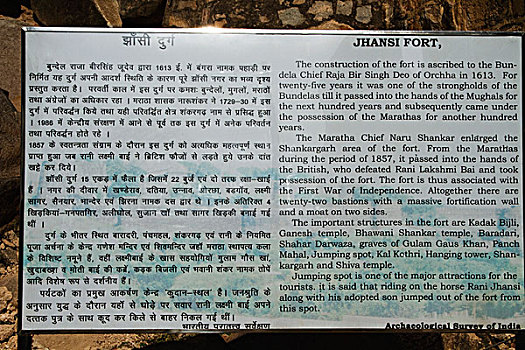 झाँसी दुर्ग
बुन्देल राजा बीरसिंह जूदेव द्वारा 1613 ई. में बंगरा नामक पहाड़ी पर
निर्मित यह दुर्ग अपनी आदर्श स्थिति के कारण पूरे झाँसी नगर का भव्य दृश्य
प्रस्तुत करता है। परवर्ती काल में इस दुर्ग पर क्रमशः बुन्देलों, मुगलों, मराठों
तथा अंग्रेजों का अधिकार रहा । मराठा शासक नारूशंकर ने 1729-30 में इस
दुर्ग में परिवर्द्धन किये तथा यही परिवर्द्धित क्षेत्र शंकरगढ़ नाम से प्रसिद्ध हुआ
। 1986 में केन्द्रीय संरक्षण में आने से पूर्व तक इस दुर्ग में अनेक परिवर्तन
तथा परिवर्द्धन होते रहे ।
1857 के स्वतन्त्रता संग्राम के दौरान इस दुर्ग को अत्यधिक महत्वपूर्ण स्थान
प्राप्त हुआ जब रानी लक्ष्मी बाई ने ब्रिटिश फौजों से लड़ते हुये उनके दांत
खट्टे कर दिये ।
झाँसी दुर्ग 15 एकड़ में फैला है जिसमें 22 बुर्ज एवं दो तरफ रक्षा-खाई
है । नगर की दीवार में खण्डेराव, दतिया, उन्नाव, ओरछा, बड़गाँव, लक्ष्मी
सागर, सैनयार, भान्डेर एवं झिरना नामक दस द्वार थे । इनके अतिरिक्त 4
खिड़कियां-गनपतगिर, अलीघोल, सुजान खाँ तथा सागर खिड़की बनाई गई
थीं ।
दुर्ग के भीतर स्थित बारादरी, पंचमहल, शंकरगढ़ एवं रानी के नियमित
पूजा अर्चना के केन्द्र गणेश मन्दिर एवं शिवमन्दिर जहाँ मराठा स्थापत्य कला
के विशिष्ट नमूने हैं, वहीं लक्ष्मीबाई के खास सहयोगियों गुलाम गौस खां,
खुदाबख्श व मोती बाई की कब्रें, कड़क बिजली एवं भवानी शंकर नामक तोपें
आदि विशेष रूप से दर्शनीय हैं।
पर्यटकों का प्रमुख आकर्षण केन्द्र 'कुदान-स्थल' है। जनश्रुति के
अनुसार युद्ध के दौरान यहाँ से घोड़े पर सवार रानी लक्ष्मी बाई अपने
दत्तक पुत्र के साथ कूद कर किले से बाहर निकल गई थीं ।
भारतीय पुरातत्व सर्वेक्षण
JHANSI FORT,
The construction of the fort is ascribed to the Bun-
dela Chief Raja Bir Singh Deo of Orchha in 1613. For
twenty-five years it was one of the strongholds of the
Bundelas till it passed into the hands of the Mughals for
the next hundred years and subsequently came under
the possession of the Marathas for another hundred
years.
The Maratha Chief Naru Shankar enlarged the
Shankargarh area of the fort. From the Marathas
during the period of 1857, it passed into the hands of
the British, who defeated Rani Lakshmi Bai and took
possession of the fort. The fort is thus associated with
the First War of Independence. Altogether there are
twenty-two bastions with a massive fortification wall
and a moat on two sides.
The important structures in the fort are Kadak Bijli,
Ganesh temple, Bhawani Shankar temple, Baradari,
Shahar Darwaza, graves of Gulam Gaus Khan, Panch
Mahal, Jumping spot, Kal Kothri, Hanging tower, Shan-
kargarh and Shiva temple.
Jumping spot is one of the major attractions for the
tourists. it is said that riding on the horse Rani Jhansi
along with his adopted son jumped out of the fort from
this spot.
Archaeological Survey of India